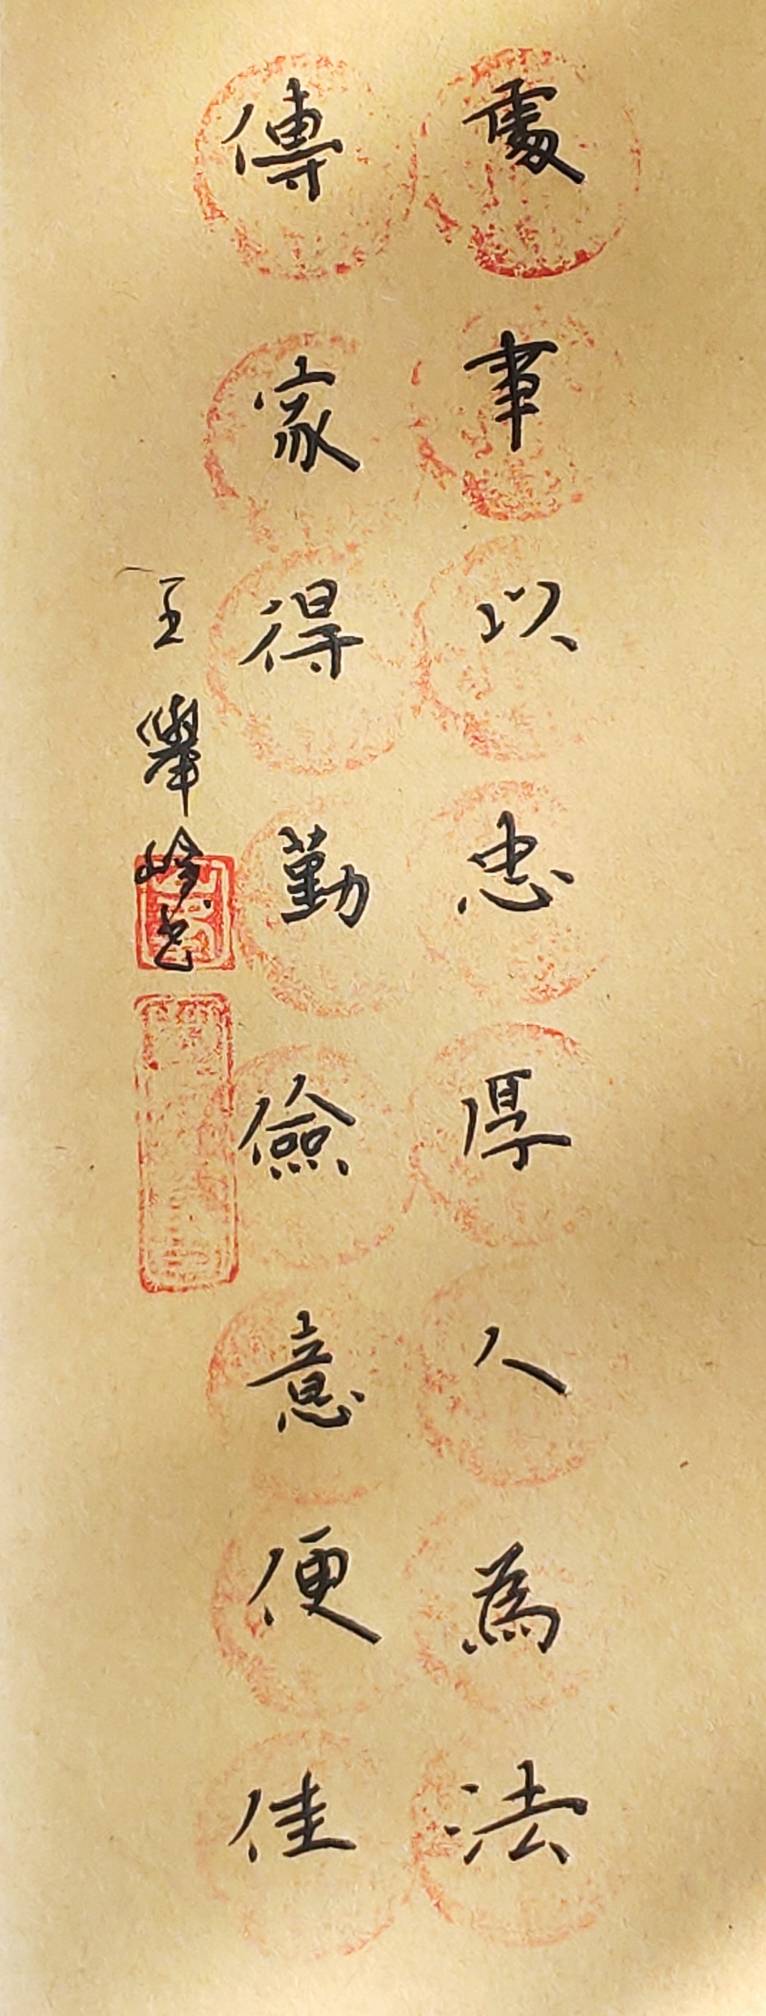 處事以忠厚人為法
傳家得勤儉意便佳
王舉峰書